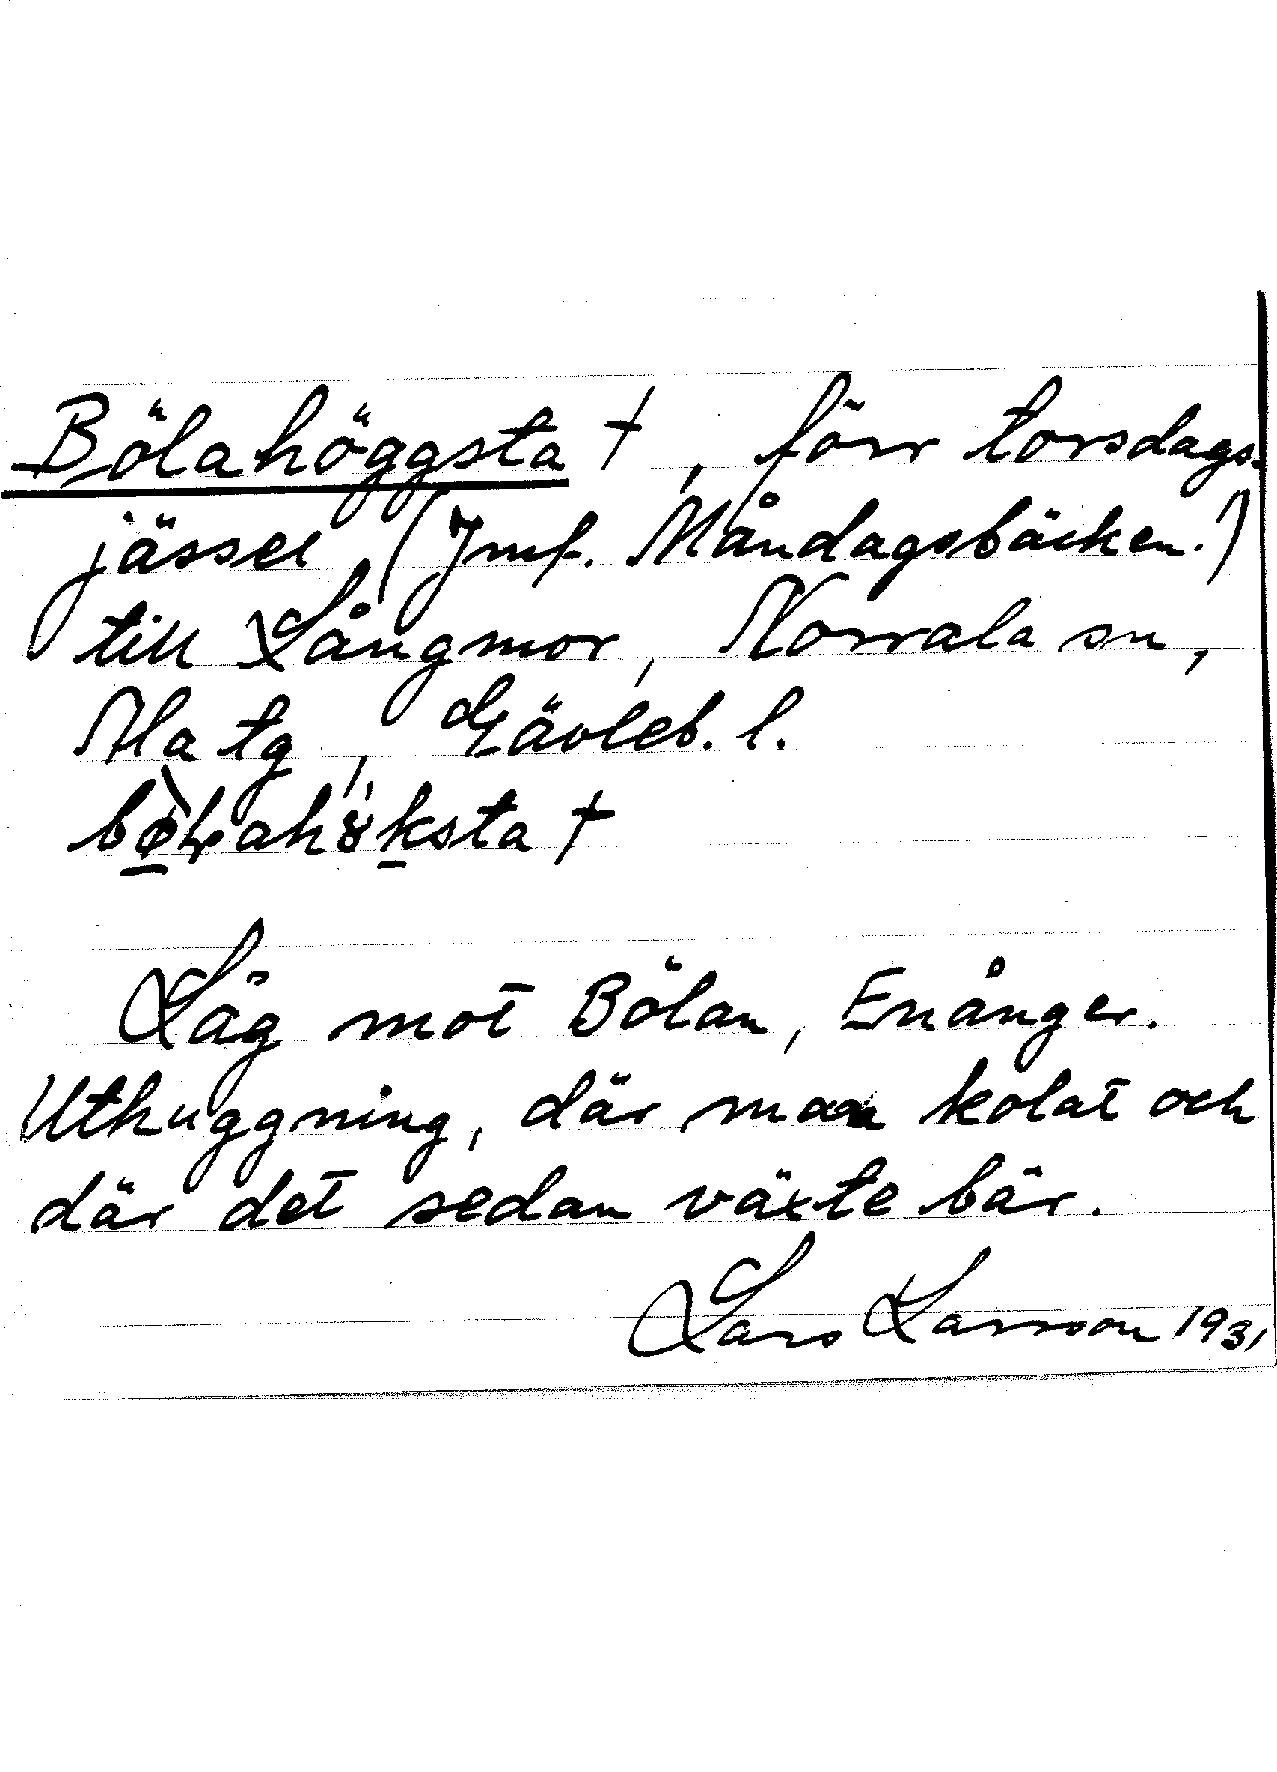 Bölahöggsta †, förr torsdags-
jässel (Jmf. Måndagsbäcken!)
till Långmor, Norrala sn,
Ala tg, Gävleb. l.
Låg mot Bölan, Enånger.
Uthuggning, där man kolat och
där det sedan växte bär.
Lars Larsson 1931